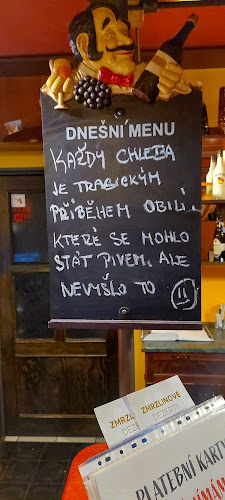 DNEŠNÍ MENU
KAŽDÝ CHLEBA
JE TRAGICKÝM
PŘÍBĚHEM OBILÍ,
KTERÉ SE MOHLO
STÁT PIVEM, ALE
NEVYŠLO TO
ZMRZLINOVÉ
DEZERTY
PLATEBNÍ KARTY